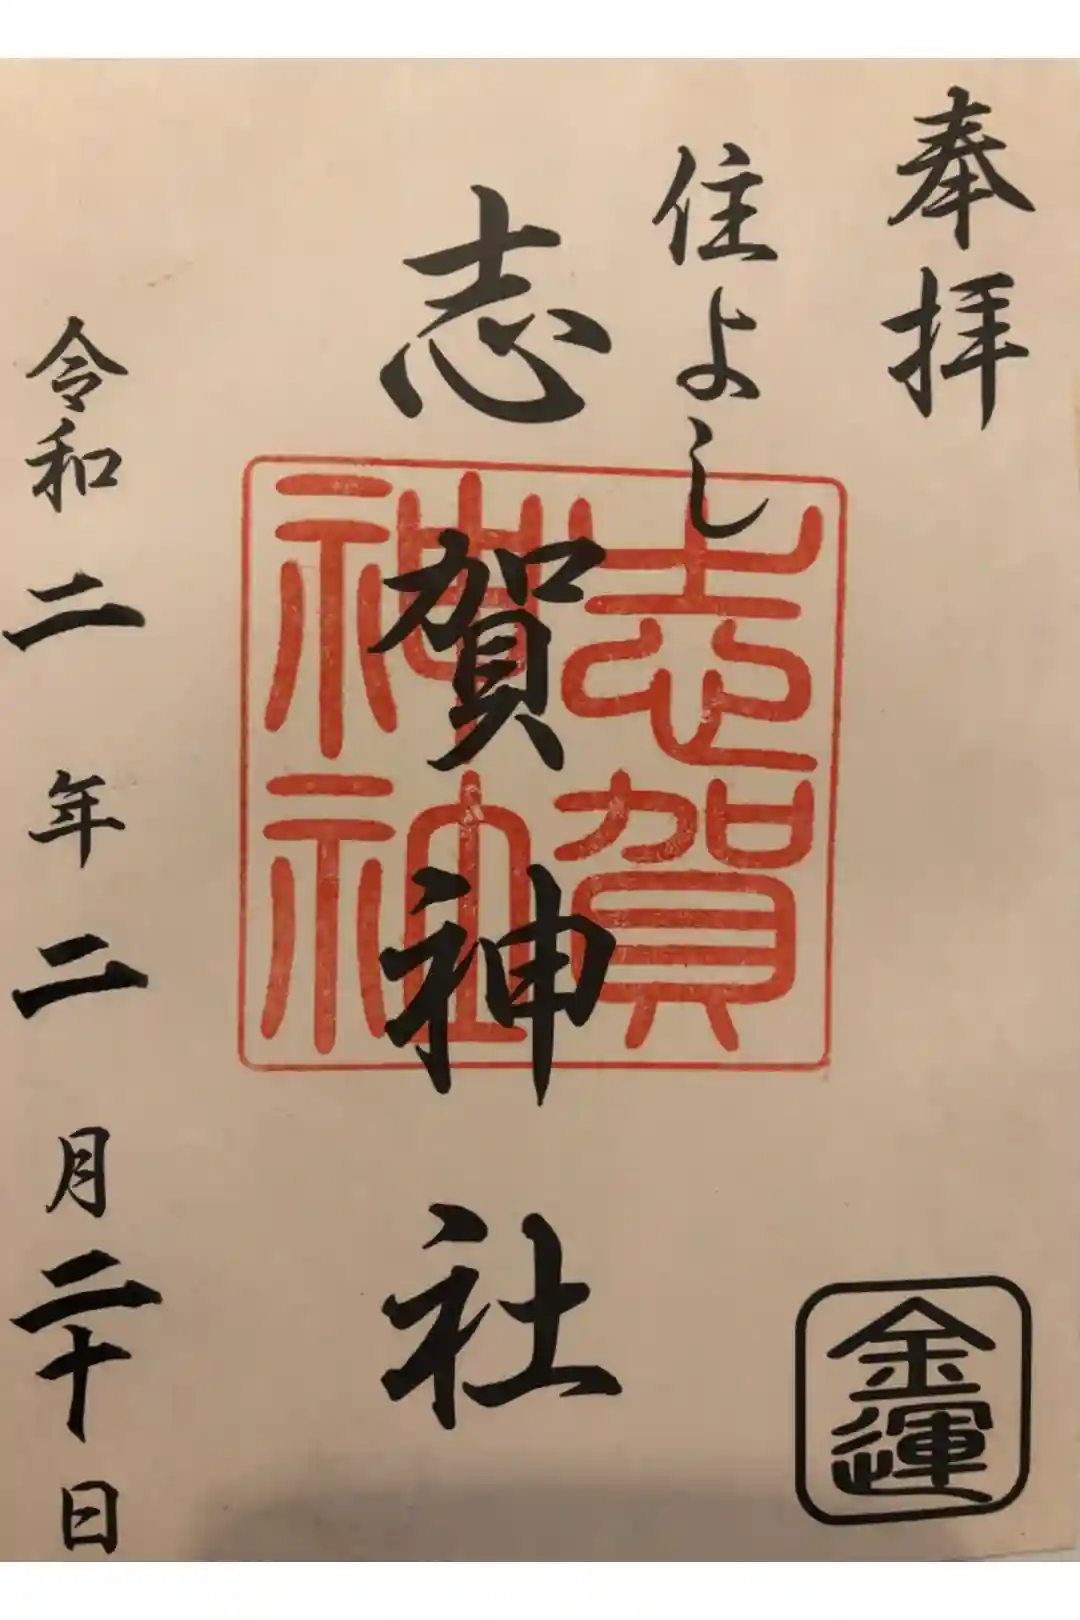 奉拝
金運
住よし
志賀神社
志賀
神社
令和二年二月二十日